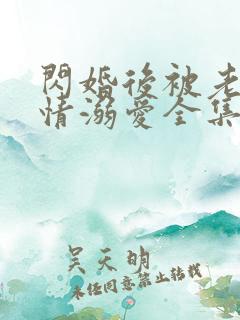 閃婚後被老
情溺愛全集
吴天明
未經同意禁止轉載